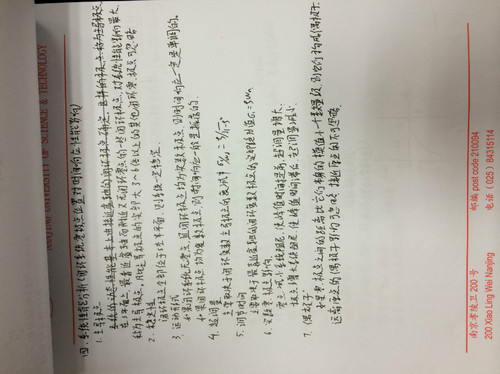 NANJING UNIVERSITY OF SCIENCE & TECHNOLOGY
四. 系统性能分析(闭环系统零极点位置对时间响应性能影响)
1. 主导极点
系统的动态性能基本上由接近虚轴的闭环极点确定,这样的极点,称为主导极点
在S平面上,最靠近虚轴而附近又无闭环零点的一些闭环极点,对系统性能影响最大
称为主导极点,凡比主导极点的实部大3~6倍以上的其他闭环零极点可忽略
2. 稳定性
闭环极点全部位于S左半平面,则系统一定稳定.
3. 运动形式
如果闭环系统无零点,且闭环极点均为实数极点,则时间响应一定是单调的,
如果闭环极点均为复数极点,则时间响应一般是振荡的.
4. 超调量
主要取决于闭环复数主导极点的衰减率
5. 调节时间
主要取决于最靠近虚轴的闭环复数极点的实部绝对值
6. 实数零、极点影响
零点减小系统阻尼,使峰值时间提前,超调量增大.
极点增大系统阻尼,使峰值时间滞后,超调量减小.
7. 偶极子
如果零、极点之间的距离比它们本身的模值小一个数量级,则它们构成偶极子.
远离原点的偶极子影响可忽略,接近原点的不可忽略.
南京孝陵卫 200 号 邮编 post code 210094
200 Xiao Ling Wei Nanjing 电话(025)84315114